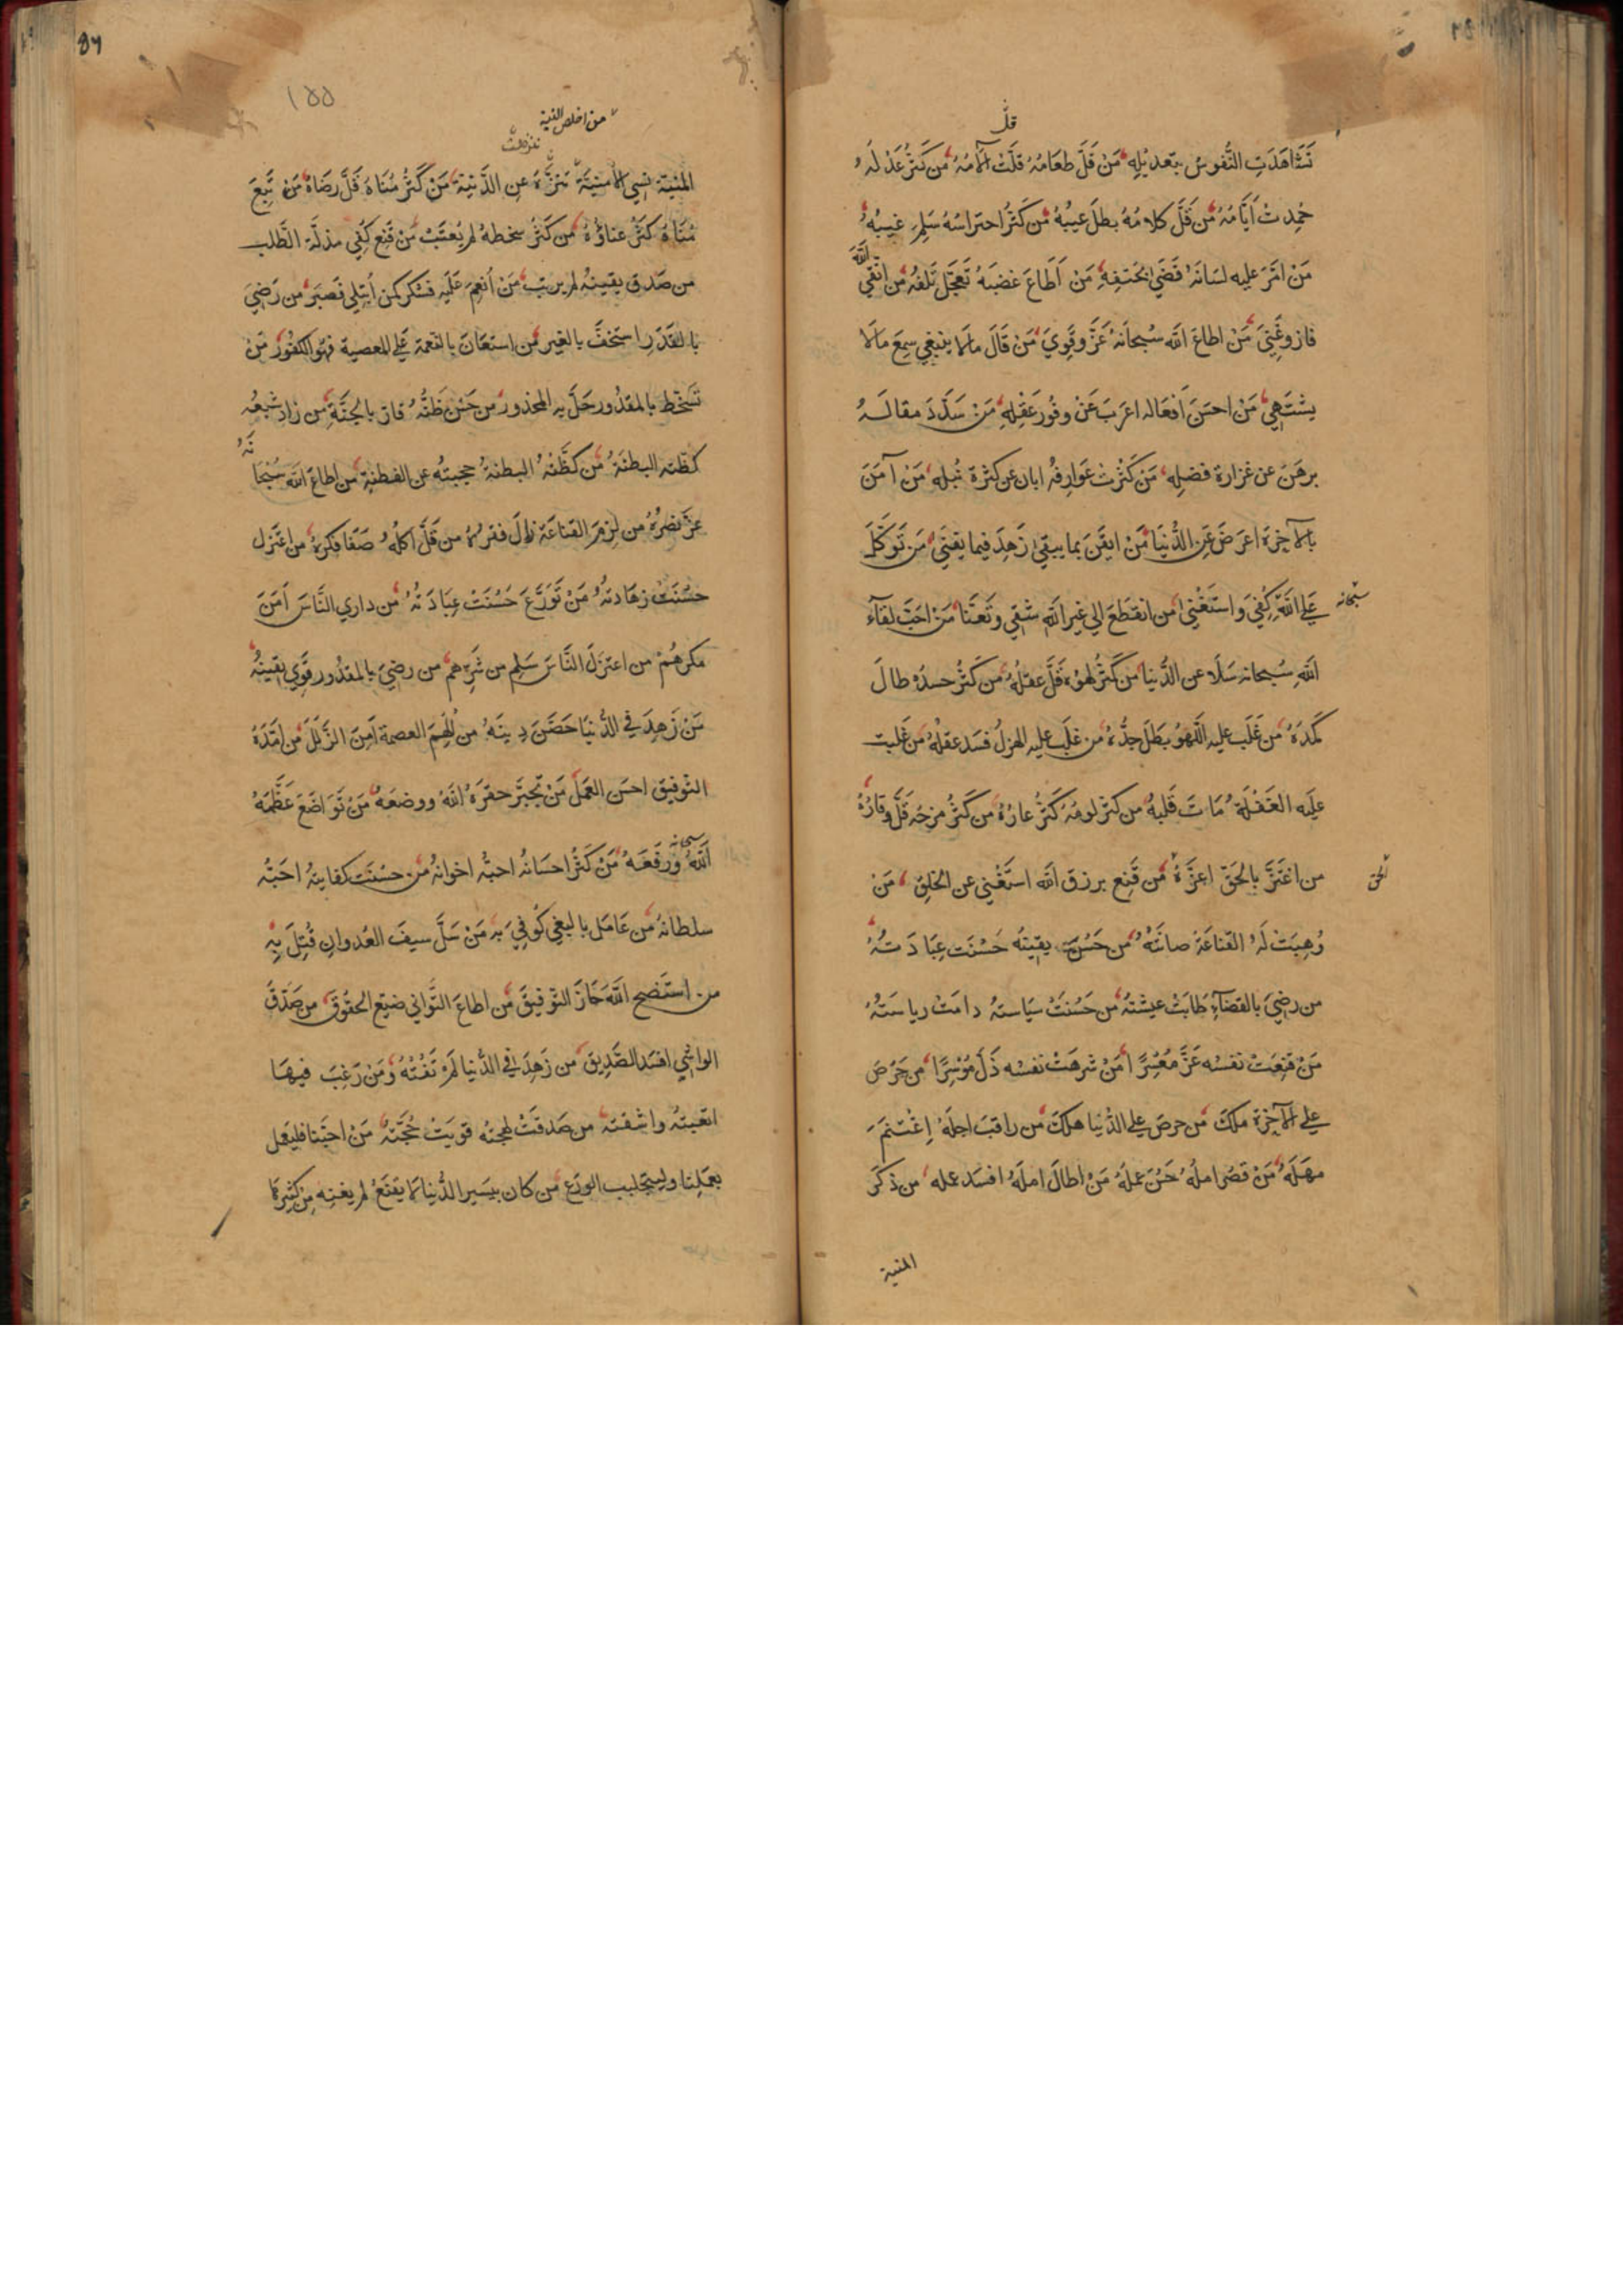 قلّ
تَشَاهَدَتِ النُّفوسُ بتعديْلِهِ مَنْ قَلَّ طعَامُهُ قلَّتْ آلَامُهُ مَن كَثُرَ عَدْلُهُ
حُمِدتْ اَيَّامُهُ مَن قَلَّ كلامُهُ بطلَ عيبُهُ مَن كَثُرَ احتراسُهُ سَلِمَ غيبُهُ
مَنْ امَّرَ عليه لسَانَهُ قَضَي بحَتفِهِ مَنْ اَطَاعَ غضبَهُ تَعجَّلَ تَلَفُهُ مَن اتّقي اللّٰهَ
فازوغَنِيَ مَنْ اطاعَ اللّٰه سُبحانَهُ عَزَّ وقَوِيَ مَنْ قَالَ مالَا ينبغي سمِعَ مالَا
يشتَهِي مَنْ احسَنَ اَفعَاله اعرَبَ عَنْ وفُورِ عَقْلِهِ مَنْ سَدَّدَ مقالَهُ
برهَنَ عن غزارة فضلِهِ مَنْ كَثُرَتْ عَوَارِفُهُ ابان عن كثرة نُبلِهِ مَنْ آمَنَ
بالآخِرَة اعرَضَ عَنِ الدُّنيَا مَنْ ايقَنَ بما يبقيٰ زَهِدَ فيما يفنيٰ مَن تَوَكَّلَ
عَلي اللّٰهِ كُفِيَ وَاستَغْنيٰ من انقطَعَ الي غير اللّٰهِ شَقِي وتَعَنَّا مَنْ احَبَّ لقَآءَ
سبحانه
اللّٰهِ سُبحانه سَلَا عن الدُّنيا مَن كَثُرَ لَهوُهُ قَلَّ عقلُهُ مَن كَثُرَ حسدُهُ طالَ
كَمَدُهُ مَن غَلَبَ عليه اللَّهوُ بَطلَ جدُّهُ من غلبَ عليه الهزلُ فسَد عقلُهُ مَن غَلبَت
عليه الغَفْلَةُ مَاتَ قلبُهُ مَن كثرَ لومُهُ كَثُرَ عارُهُ مَن كَثُرَ مزحُه قَلَّ وقارُهُ
من اغتَزَّ بالحَقِّ اعزّهُ مَن قَنِعَ برزق اللّٰه استَغْني عن الخلقِ مَنْ
الحق
وُهِبَتْ لَهُ القناعَة صانَتْهُ مَن حَسُنَ يقينُه حَسُنَت عِبَادَتُهُ
من رضيَ بالقضآءِ طَابَتْ عيشَتُهُ مَن حَسُنَتْ سيَاستُهُ دامَتْ رياسَتُهُ
مَنْ قَنِعَتْ نفسُه عَزَّ مُعْسِرًا مَنْ شرهَتْ نفسُه ذَلَّ مُوْسِرًا من حَرَصَ
علي الآخِرَة ملكَ مَن حرصَ علي الدُّنيا هلكَ مَن راقبَ اجلَهُ اِغْتَنَمَ
مهَلَهُ مَنْ قصُر املُهُ حَسُنَ عملُهُ مَنْ اطالَ املَهُ افسَد عمله من ذكَرَ
المنية
٧٥٠
١٥٥
من اخلص النية
تنزهت
المَنِيَّة نسي الاُمنيَّةَ تنزَّهَ عن الدَّنيّة مَنْ كَثُرَ مُنَاهُ قَلَّ رِضَاهُ مَن تَبعَ
مُنَاهُ كَثُرَ عناؤُهُ من كَثُرَ سخطهُ لم يُعتَبْ مَنْ قَنِعَ كُفِي مذلّة الطَّلب
من صَدقَ يقينُهُ لم يرتب مَن اُنعِمَ عَلَيه فشكر كمن اُبتلي فصَبَرَ من رَضيَ
بالقَدَرِ استخفَّ بالغير مَن استعَانَ بالنعمة عَلي المعصية فهُو الكفُورُ مَنْ
تسَخّط بالمقدُور حَلَّ به المحذورُ من حَسُنَ ظنّهُ فازَ بالجَنّةِ من زادَ شبعُهُ
كظّته البطنَةُ مَن كظَّتْهُ البطنةُ حجبَتْهُ عن الفطنةِ من اطاعَ اللّٰه سُبحَانَهُ
عَزَّ نصرُهُ من لزِمَ القناعَة زالَ فقرُهُ من قَلَّ اكلُهُ صَفَا فكرُهُ من اعتَزل
حَسُنَتْ زهَادتُهُ مَنْ تَوَرَّعَ حَسُنَتْ عِبَادَتُهُ مَن داري النَّاسَ اَمِنَ
مكرَهُمْ من اعتزَلَ النَّاسَ سَلِمَ من شَرِّهم من رضيَ بالمقدُور قَوِيَ يقينُهُ
مَنْ زَهِدَ في الدُّنيَا حَصَّنَ دِينَهُ من اُلهِمَ العصمةَ اَمِنَ الزَّلَلَ مَن امَدَّهُ
التوفيق احسَن العمَلَ مَن تجبَّر حقّرَهُ اللّٰهُ ووضعَهُ مَن تَوَاضَعَ عَظَّمَهُ
اللّٰهُ سبحانه ورَفَعَهُ مَنْ كَثُرَ احسَانُه احبَّهُ اخوانُهُ من حسُنَت كفايتُه احَبّه
سلطانُهُ مَن عَامَل بالبغي كُوفِيَ به مَنْ سَلَّ سيفَ العُدوانِ قُتِلَ بِهِ
من استَنصح اللّٰه حَازَ التوفيقَ مَن اطاعَ التَّواني ضيّع الحقُوقَ من صَدَّقَ
الواشي افسَد الصَّديق من زَهِدَ في الدُّنيا لَمْ تَفُتْهُ وَمَنْ رَغِبَ فيهَا
اتعَبتْهُ واشقتْه من صَدقَتْ لهجتُه قويَتْ حُجَّتُهُ مَنْ احبّنا فليَعمل
بعَمَلِنا وليتَجَلبب الورَع مَن كان بيسير الدُّنيا لا يقنَعُ لم يغنِه من كثيرها